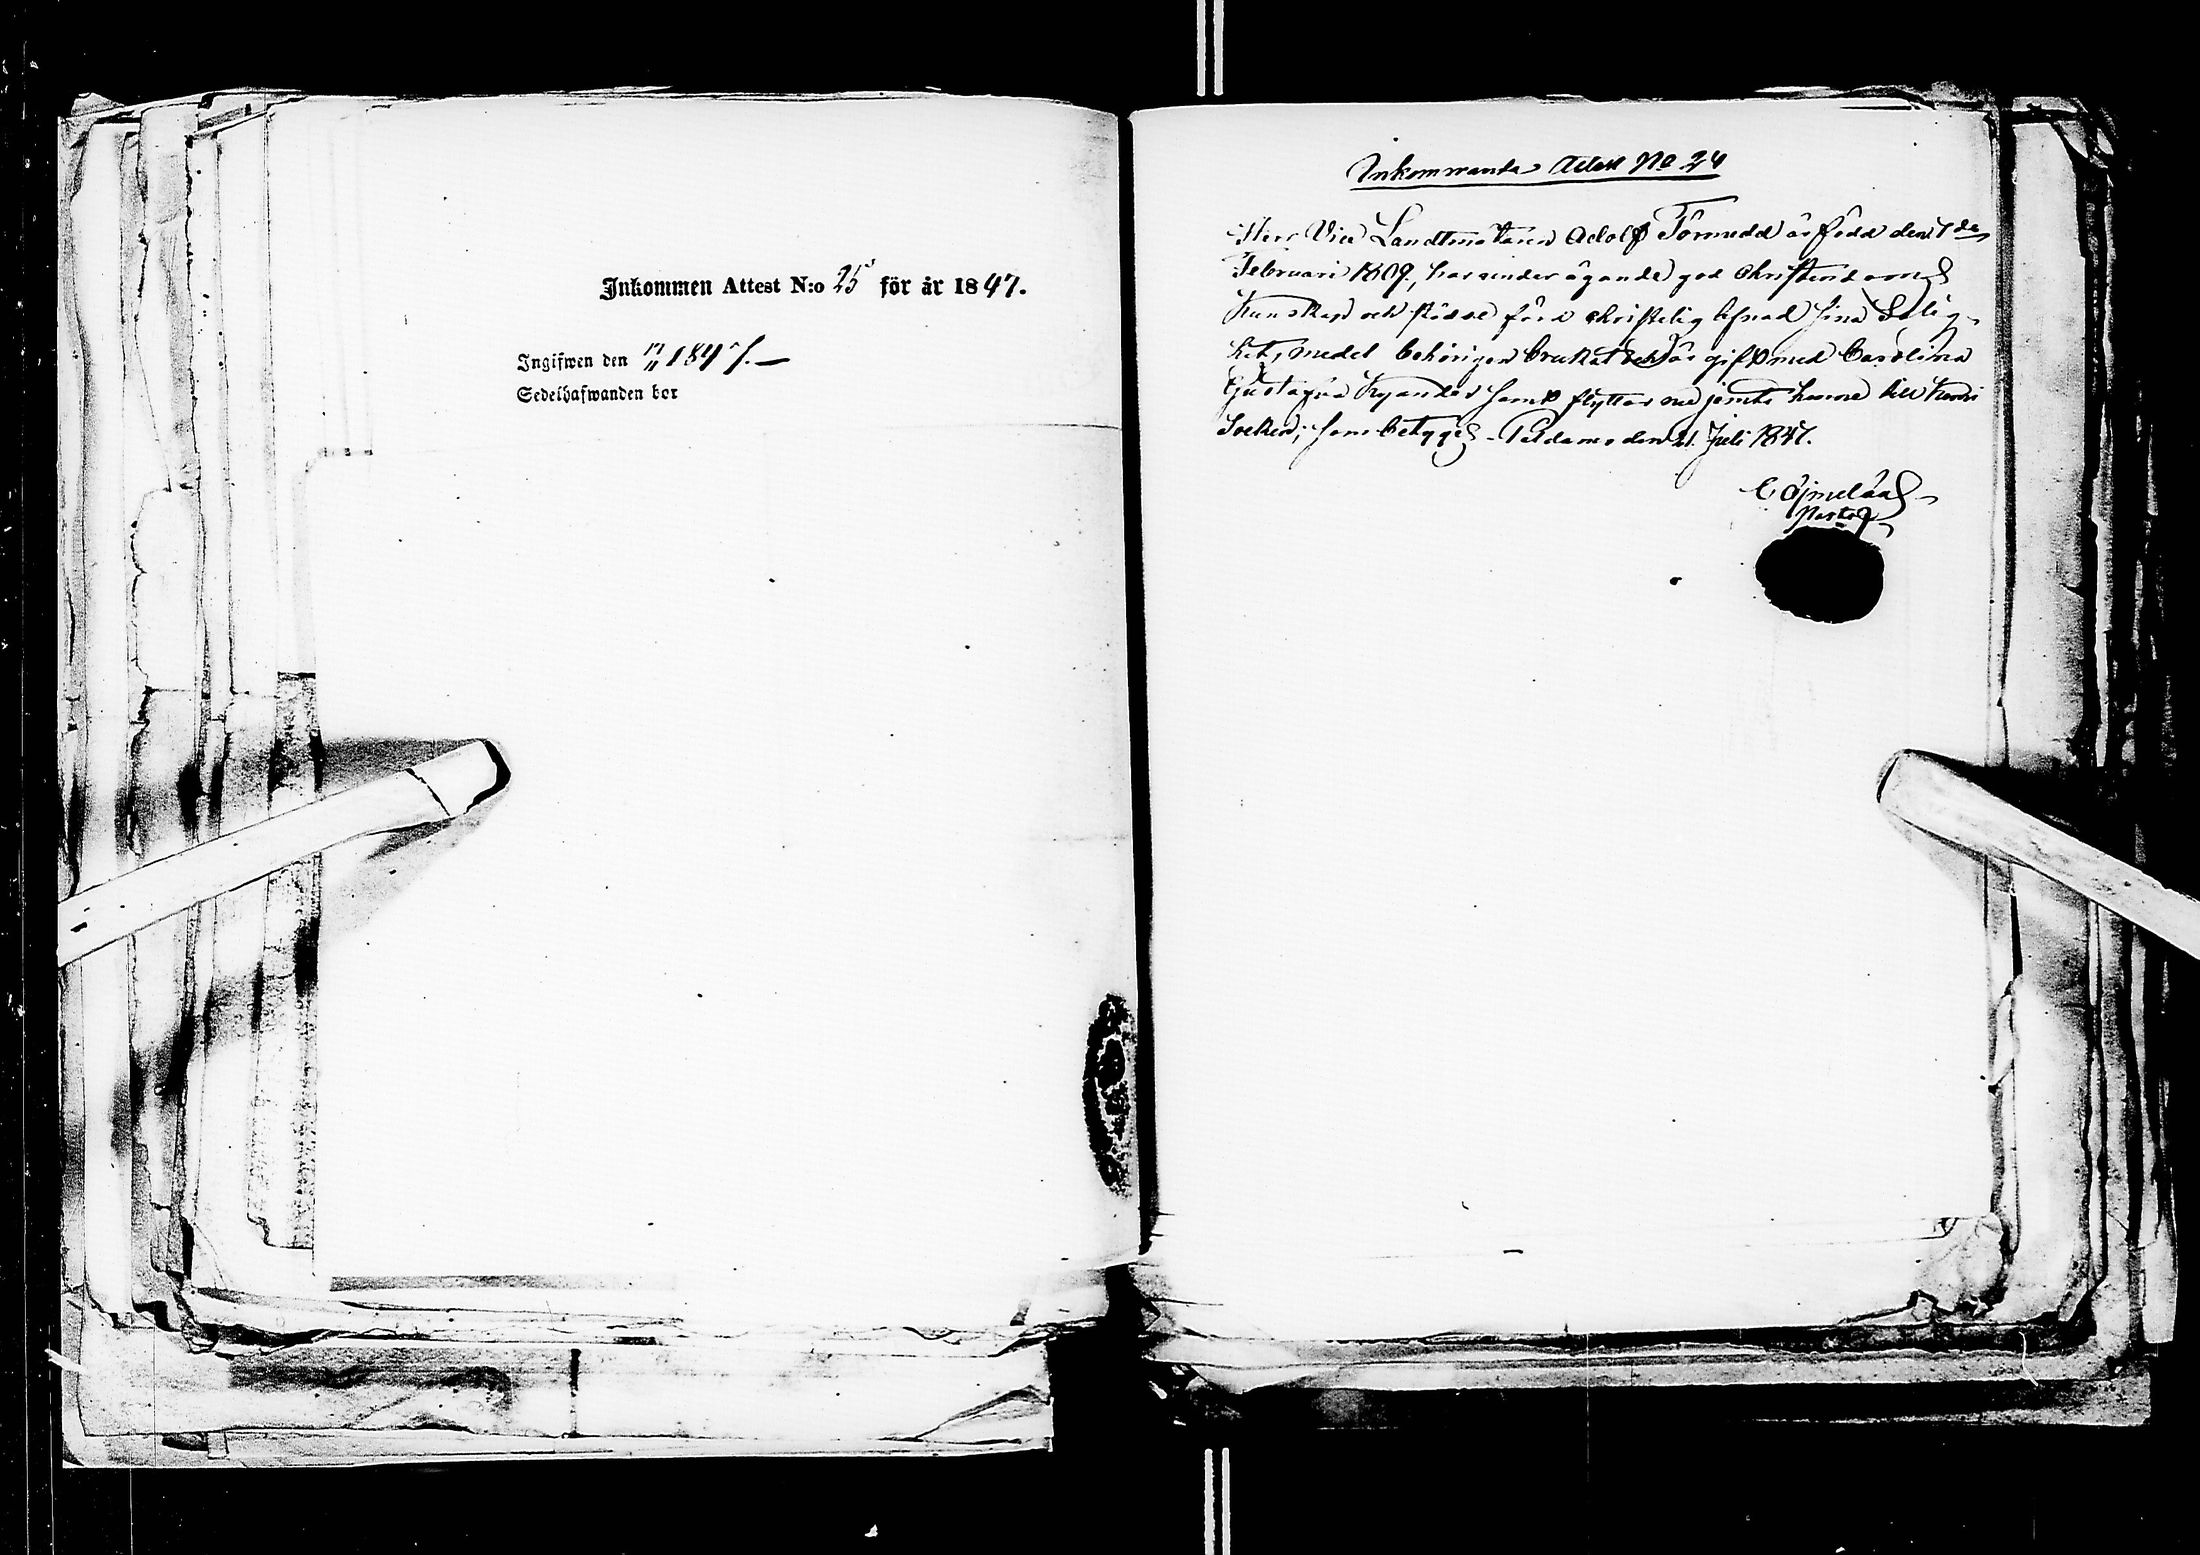 Inkommen Attest N:o 25 för år 1847.
Ingifwen den 17/11 1847.—
Sedelhafwanden bor
Inkommanda Attest No 24
Herr Vice Landtmätaren Adolf Törnudd är född den 7de
Februari 1809, har under ägande god Christendoms
Kunskap och förde en christelig lefnad sina Salig-
hets medel behörigen bruckat och är gift med Carolina
Gustafva Kyander samt flyttar nu jemte henne till Kemi
Socken; som betygas. Paldamo den 21 Juli 1847.
Pastor